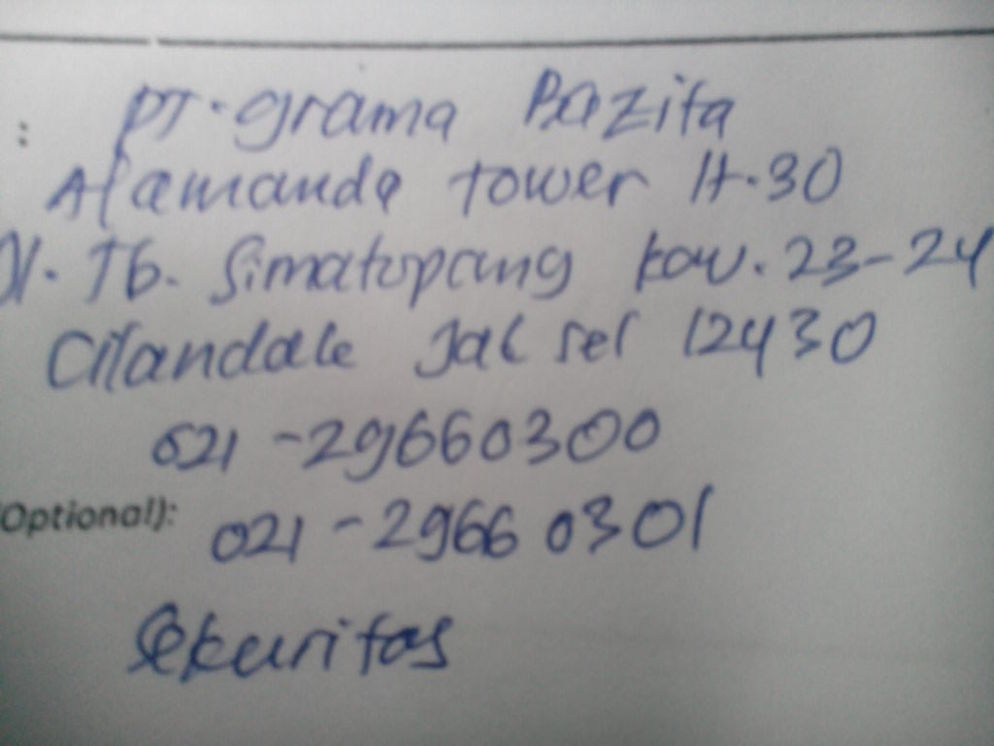 : PT. grama Bazita
Alamanda tower lt. 30
Jl. Tb. Simatupang kav. 23-24
Cilandak Jak sel 12430
021 - 29660300
(Optional): 021 - 2966 0301
Sekuritas